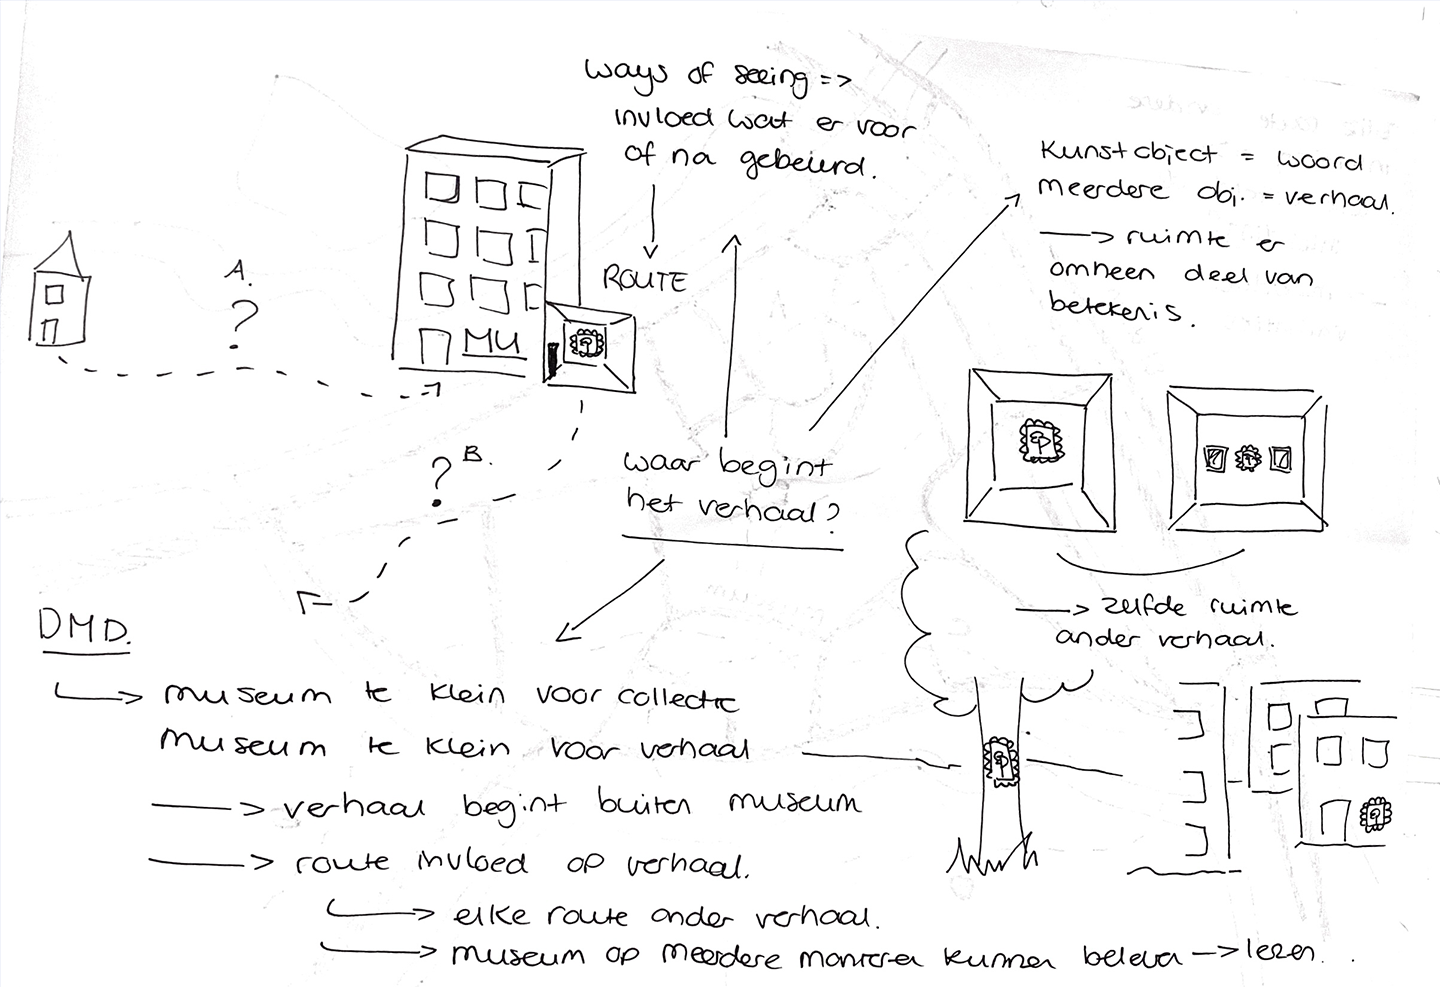 ways of seeing =>
invloed wat er voor
of na gebeurd.
ROUTE
Kunstobject = woord
meerdere obj. = verhaal.
ruimte er
omheen deel van
betekenis.
A.
?
MU
? B.
waar begint
het verhaal?
zelfde ruimte
ander verhaal.
DMD.
museum te klein voor collectie
museum te klein voor verhaal
verhaal begint buiten museum
route invloed op verhaal.
elke route ander verhaal.
museum op meerdere manieren kunnen beleven -> lezen...